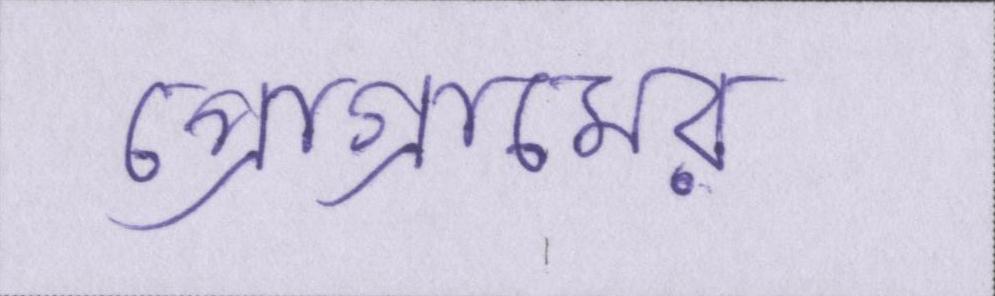 প্রোগ্রামের